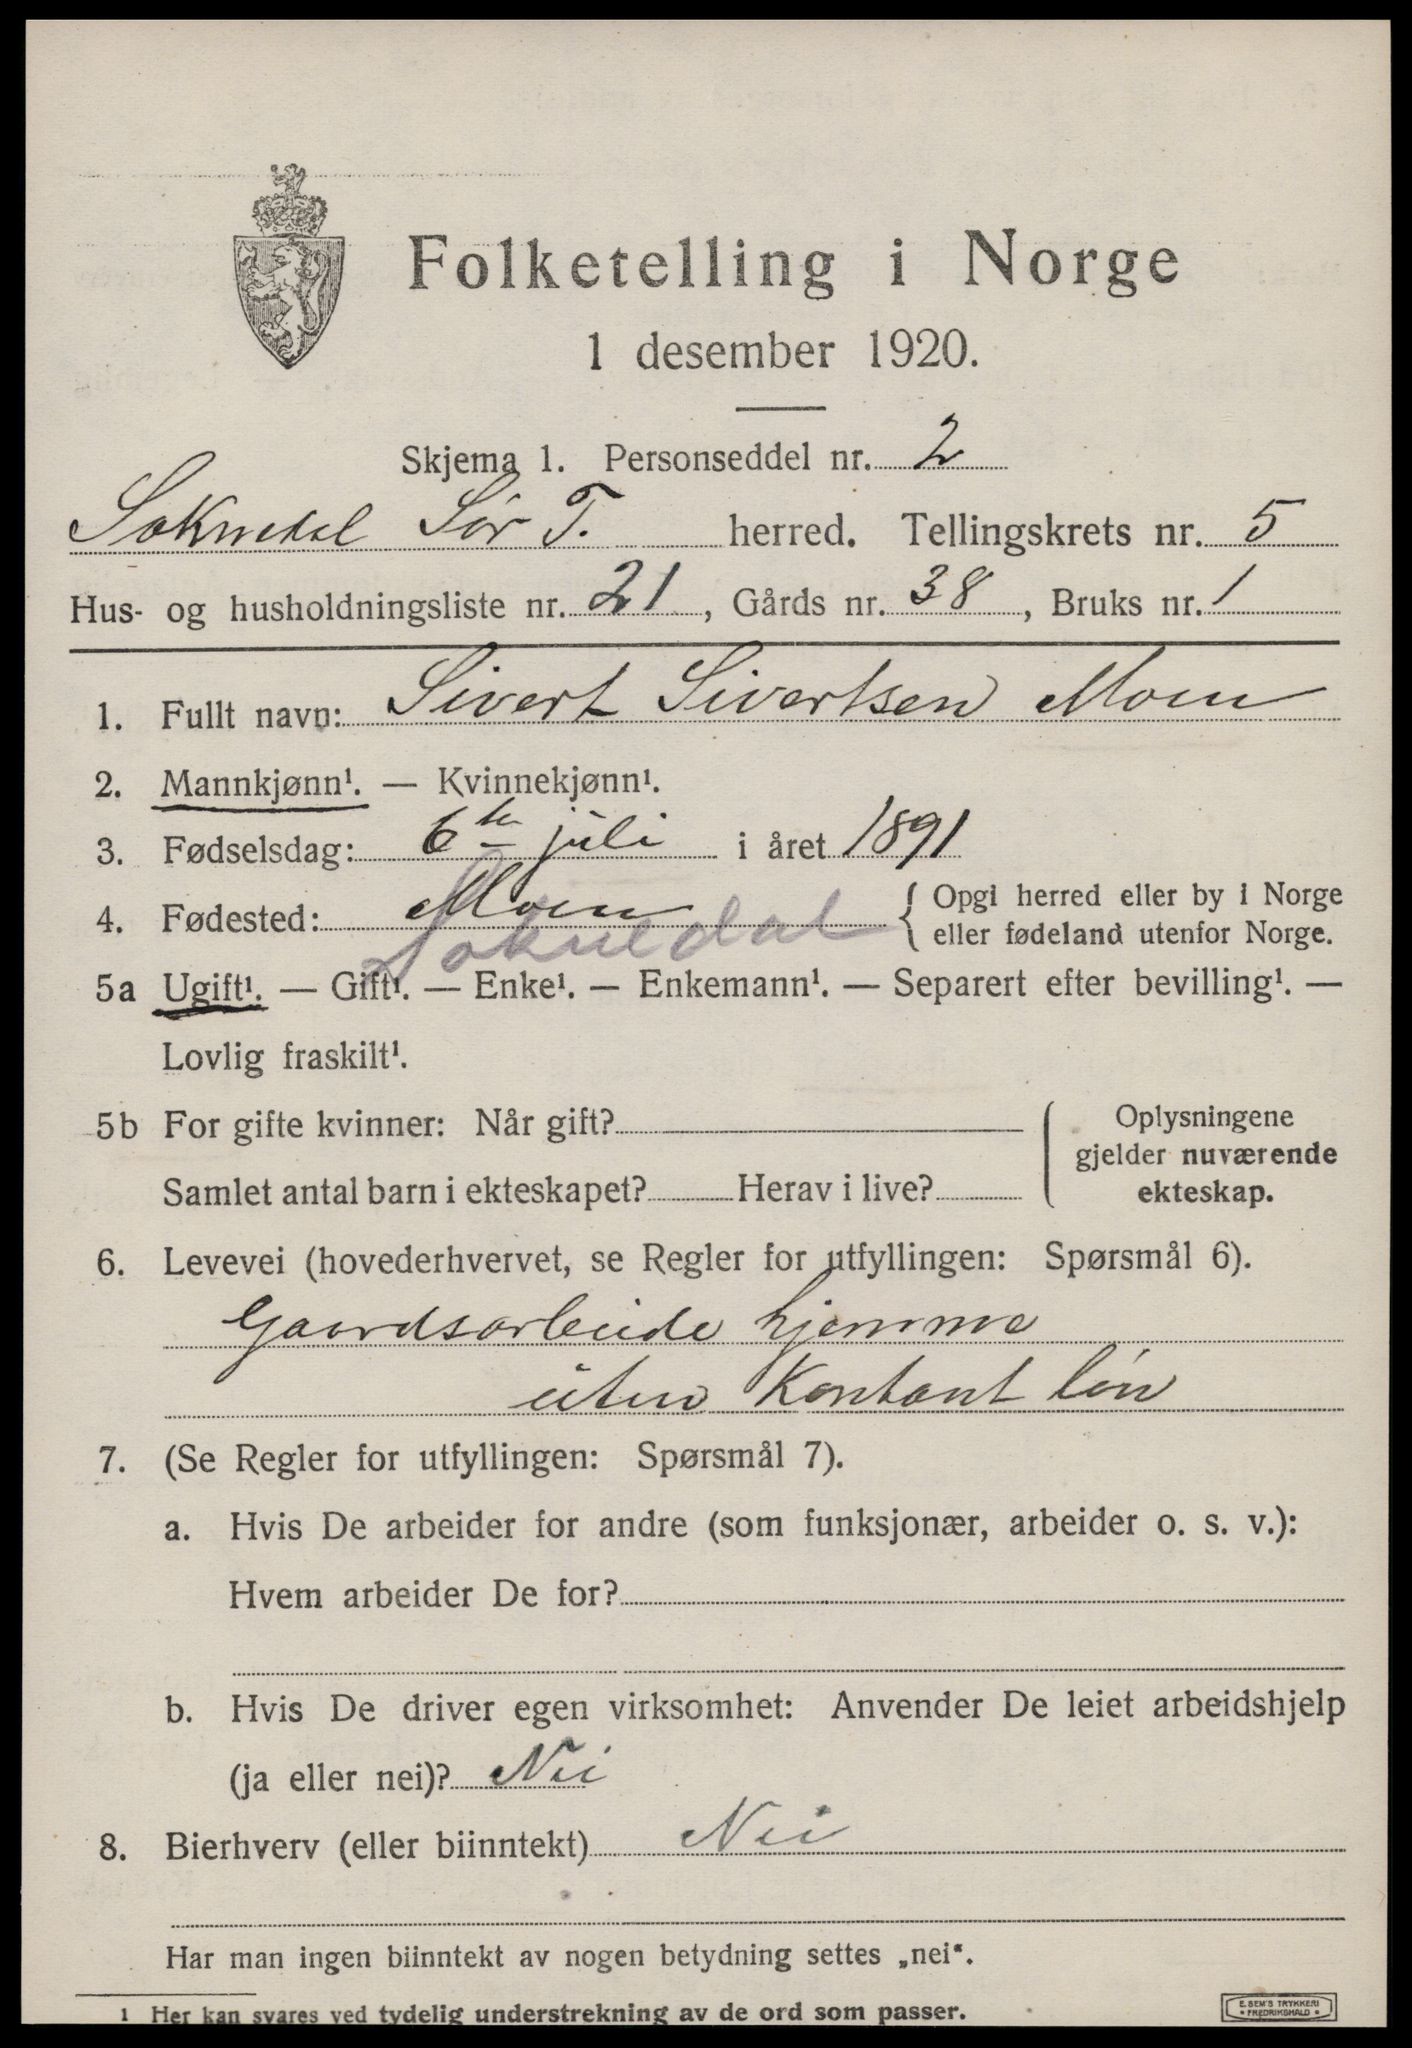 Folketelling i Norge
1 desember 1920.
Skjema 1. Personseddel nr. 2
Soknedal Sør T. herred. Tellingskrets nr. 5
Hus- og husholdningsliste nr. 21, Gårds nr. 38, Bruks nr. 1
1. Fullt navn: Sivert Sivertsen Moen
2. Mannkjønn¹. — Kvinnekjønn¹.
3. Fødselsdag: 6te juli i året 1891
4. Fødested: Moen { Opgi herred eller by i Norge
Soknedal eller fødeland utenfor Norge.
5a Ugift¹. — Gift¹. — Enke¹. — Enkemann¹. — Separert efter bevilling¹. —
Lovlig fraskilt¹.
5b For gifte kvinner: Når gift? Oplysningene
gjelder nuværende
Samlet antal barn i ekteskapet? Herav i live? ekteskap.
6. Levevei (hovederhvervet, se Regler for utfyllingen: Spørsmål 6).
Gaardsarbeide hjemme
uten Kontant løn
7. (Se Regler for utfyllingen: Spørsmål 7).
a. Hvis De arbeider for andre (som funksjonær, arbeider o. s. v.):
Hvem arbeider De for?
b. Hvis De driver egen virksomhet: Anvender De leiet arbeidshjelp
(ja eller nei)? Nei
8. Bierhverv (eller biinntekt) Nei
Har man ingen biinntekt av nogen betydning settes „nei“.
1 Her kan svares ved tydelig understrekning av de ord som passer.
E. SEM'S TRYKKERI
FREDRIKSHALD